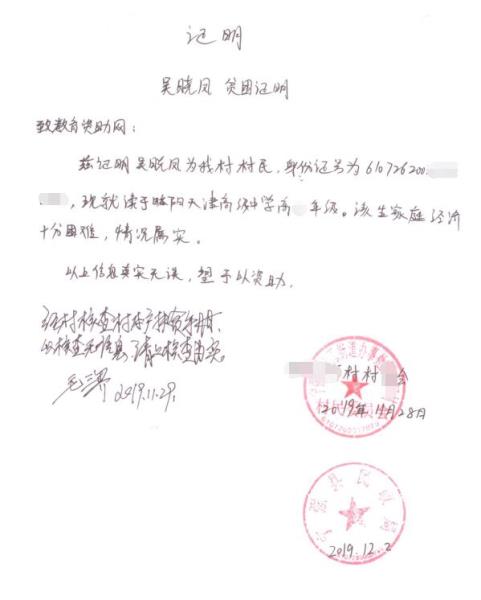 证明
吴晓凤 贫困证明
致教育资助网：
兹证明吴晓凤为我村村民，身份证号为610726200
，现就读于略阳天津高级中学高 年级。该生家庭经济
十分困难，情况属实。
以上信息真实无误，望予以资助。
经村核查
2019.11.29.
街道办事处
村村 会
村民委员会
2019年11月28日
县民政局
2019.12.2